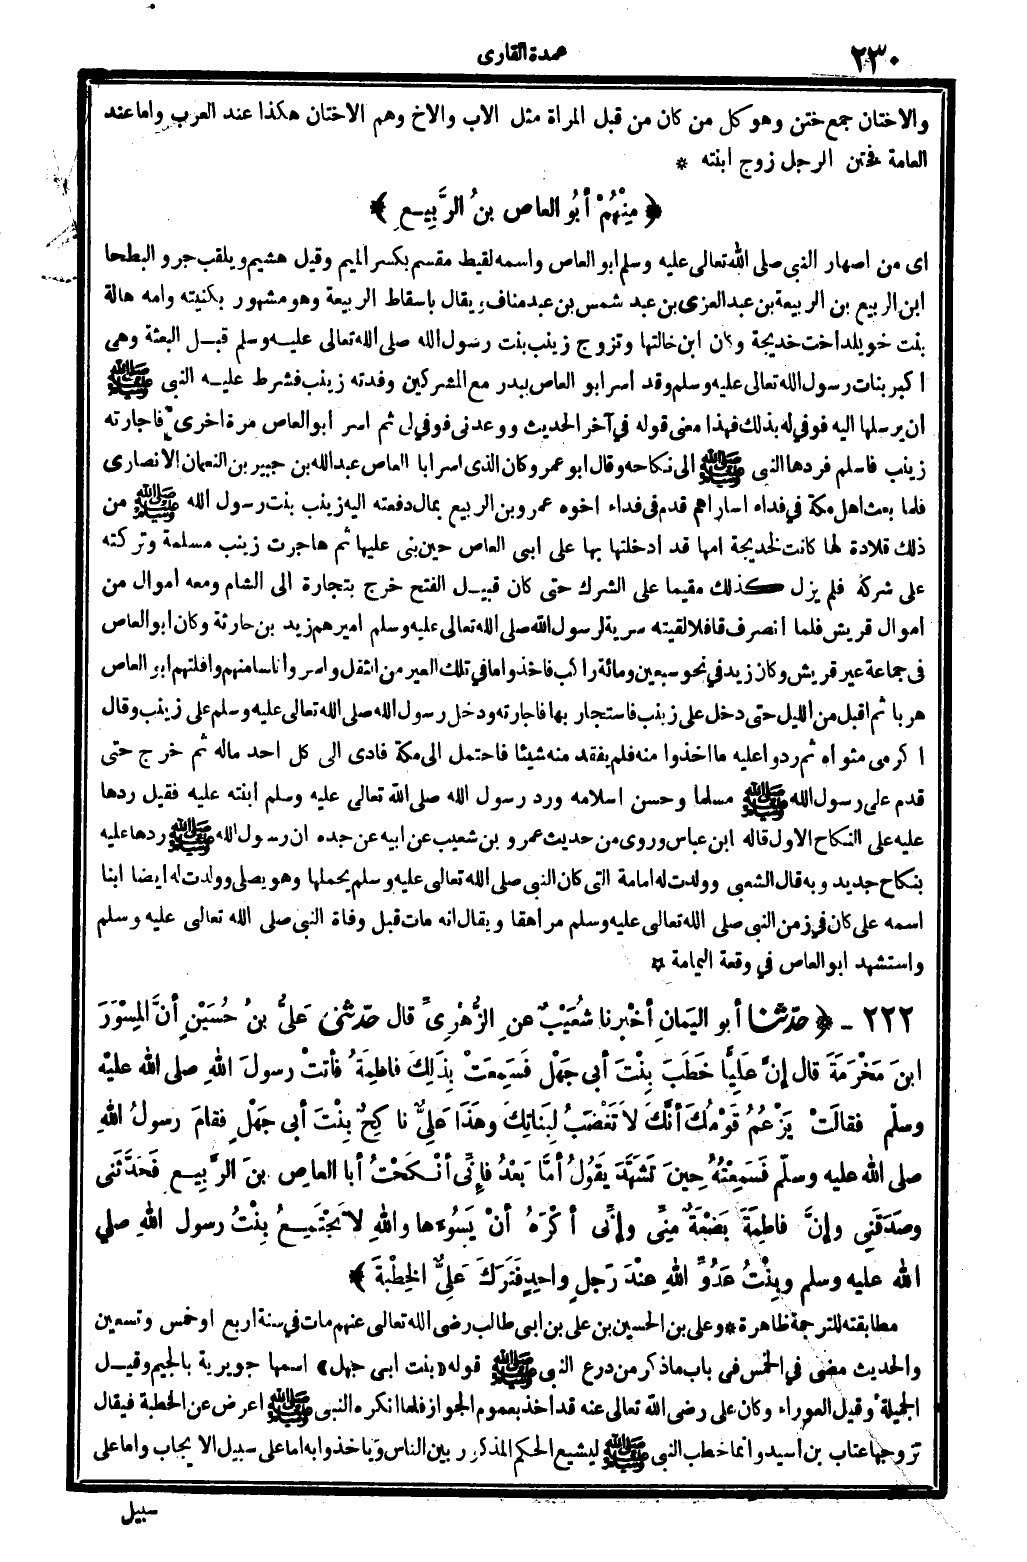 ٢٣٠
عمدة القارى
والاختان جمع ختن وهو كل من كان من قبل المراة مثل الاب والاخ وهم الاختان هكذا عند العرب واما عند
العامة فختن الرجل زوج ابنته *
﴿ مِنْهُمْ أبُو العاص بنُ الرَّبِيعِ ﴾
اى من اصهار النبي صلى الله تعالى عليه وسلم ابو العاص واسمه لقيط مقسم بكسر الميم وقيل هشيم ويلقب جرو البطحا
ابن الربيع بن الربيعة بن عبد العزى بن عبد شمس بن عبد مناف، يقال باسقاط الربيعة وهو مشهور بكنيته وامه هالة
بنت خويلد اخت خديجة وكان ابن خالتها وتزوج زينب بنت رسول الله صلى الله تعالى عليه وسلم قبل البعثة وهى
اكبر بنات رسول الله تعالى عليه وسلم وقد اسر ابو العاص ببدر مع المشركين وفدته زينب فشرط عليه النبى ﷺ
ان يرسلها اليه فوفي له بذلك فهذا معنى قوله في آخر الحديث ووعدنى فوفي لى ثم اسر ابو العاص مرة اخرى فاجارته
زينب فاسلم فردها النبى ﷺ الى نكاحه وقال ابو عمر وكان الذى اسر ابا العاص عبد الله بن جبير بن النعمان الانصارى
فلما بعث اهل مكة في فداء اساراهم قدم فى فداء اخوه عمرو بن الربيع بمال دفعته اليه زينب بنت رسول الله ﷺ من
ذلك قلادة لها كانت لخديجة امها قد ادخلتها بها على ابى العاص حين بنى عليها ثم هاجرت زينب مسلمة وتركته
على شركه فلم يزل كذلك مقيما على الشرك حتى كان قبيل الفتح خرج بتجارة الى الشام ومعه اموال من
اموال قريش فلما انصرف قافلا لقيته سرية لرسول الله صلى الله تعالى عليه وسلم اميرهم زيد بن حارثة وكان ابو العاص
فى جماعة عير قريش وكان زيد في نحو سبعين ومائة راكب فاخذوا ما في تلك العير من اثقل واسروا ناسا منهم وافلتهم ابو العاص
هربا ثم اقبل من الليل حتى دخل على زينب فاستجار بها فاجارته ودخل رسول الله صلى الله تعالى عليه وسلم على زينب وقال
اكرمى مثواه ثم ردوا عليه ما اخذوا منه فلم يفقد منه شيئا فاحتمل الى مكة فادى الى كل احد ماله ثم خرج حتى
قدم على رسول الله ﷺ مسلما وحسن اسلامه ورد رسول الله صلى الله تعالى عليه وسلم ابنته عليه فقيل ردها
عليه على النكاح الاول قاله ابن عباس وروى من حديث عمرو بن شعيب عن ابيه عن جده ان رسول الله ﷺ ردها عليه
بنكاح جديد وبه قال الشعبى وولدت له امامة التى كان النبى صلى الله تعالى عليه وسلم يحملها وهو يصلى وولدت له ايضا ابنا
اسمه على كان في زمن النبى صلى الله تعالى عليه وسلم مراهقا ويقال انه مات قبل وفاة النبى صلى الله تعالى عليه وسلم
واستشهد ابو العاص في وقعة اليمامة *
٢٢٢ - ﴿ حدّثنا أبو اليَمانِ أخْبرنا شُعَيْبٌ عنِ الزُّهْرِيِّ قال حدّثنى عَلِيُّ بنُ حُسَيْنٍ أنَّ المِسْوَرَ
ابنَ مَخْرَمَةَ قال إنَّ عَلِيًّا خَطَبَ بِنْتَ أبى جَهْلٍ فَسَمِعَتْ بِذَلِكَ فاطِمَةُ فأتتْ رسولَ اللهِ صلى الله عليْه
وسلّم فقالَتْ يَزْعُمُ قَوْمُكَ أنَّكَ لاَ تَغْضَبُ لِبَناتِكَ وهَذَا عَلِيٌّ ناكِحٌ بِنْتَ أبى جَهْلٍ فقامَ رسولُ اللهِ
صلى الله عليه وسلّم فَسَمِعْتُهُ حِينَ تَشَهَّدَ يَقُولُ أمَّا بَعْدُ فإنِّى أنْكَحْتُ أبا العاصِ بنَ الرَّبِيعِ فَحَدَّثَنى
وصَدَقَنِي وإنَّ فاطِمَةَ بَضْعَةٌ مِنِّى وإنِّى أكْرَهُ أنْ يَسُوءَها واللهِ لاَ تَجْتَمِعُ بِنْتُ رسولِ اللهِ صلي
الله عليه وسلم وبِنْتُ عَدُوِّ اللهِ عِنْدَ رَجلٍ واحِدٍ فَتَرَكَ عَلِيٌّ الخِطْبةَ ﴾
مطابقته للترجمة ظاهرة * وعلى بن الحسين بن على بن ابى طالب رضى الله تعالى عنهم مات في سنة اربع او خمس وتسعين
والحديث مضى في الخمس فى باب ما ذكر من درع النبى ﷺ قوله «بنت ابى جهل» اسمها جويرية بالجيم وقيل
الجميلة وقيل العوراء وكان على رضى الله تعالى عنه قد اخذ بعموم الجواز فلما انكره النبى ﷺ اعرض عن الخطبة فيقال
تزوجها عتاب بن أسيد وانما خطب النبى ﷺ ليشيع الحكم المذكور بين الناس وياخذوا به اما على سبيل الايجاب واما على
سبيل